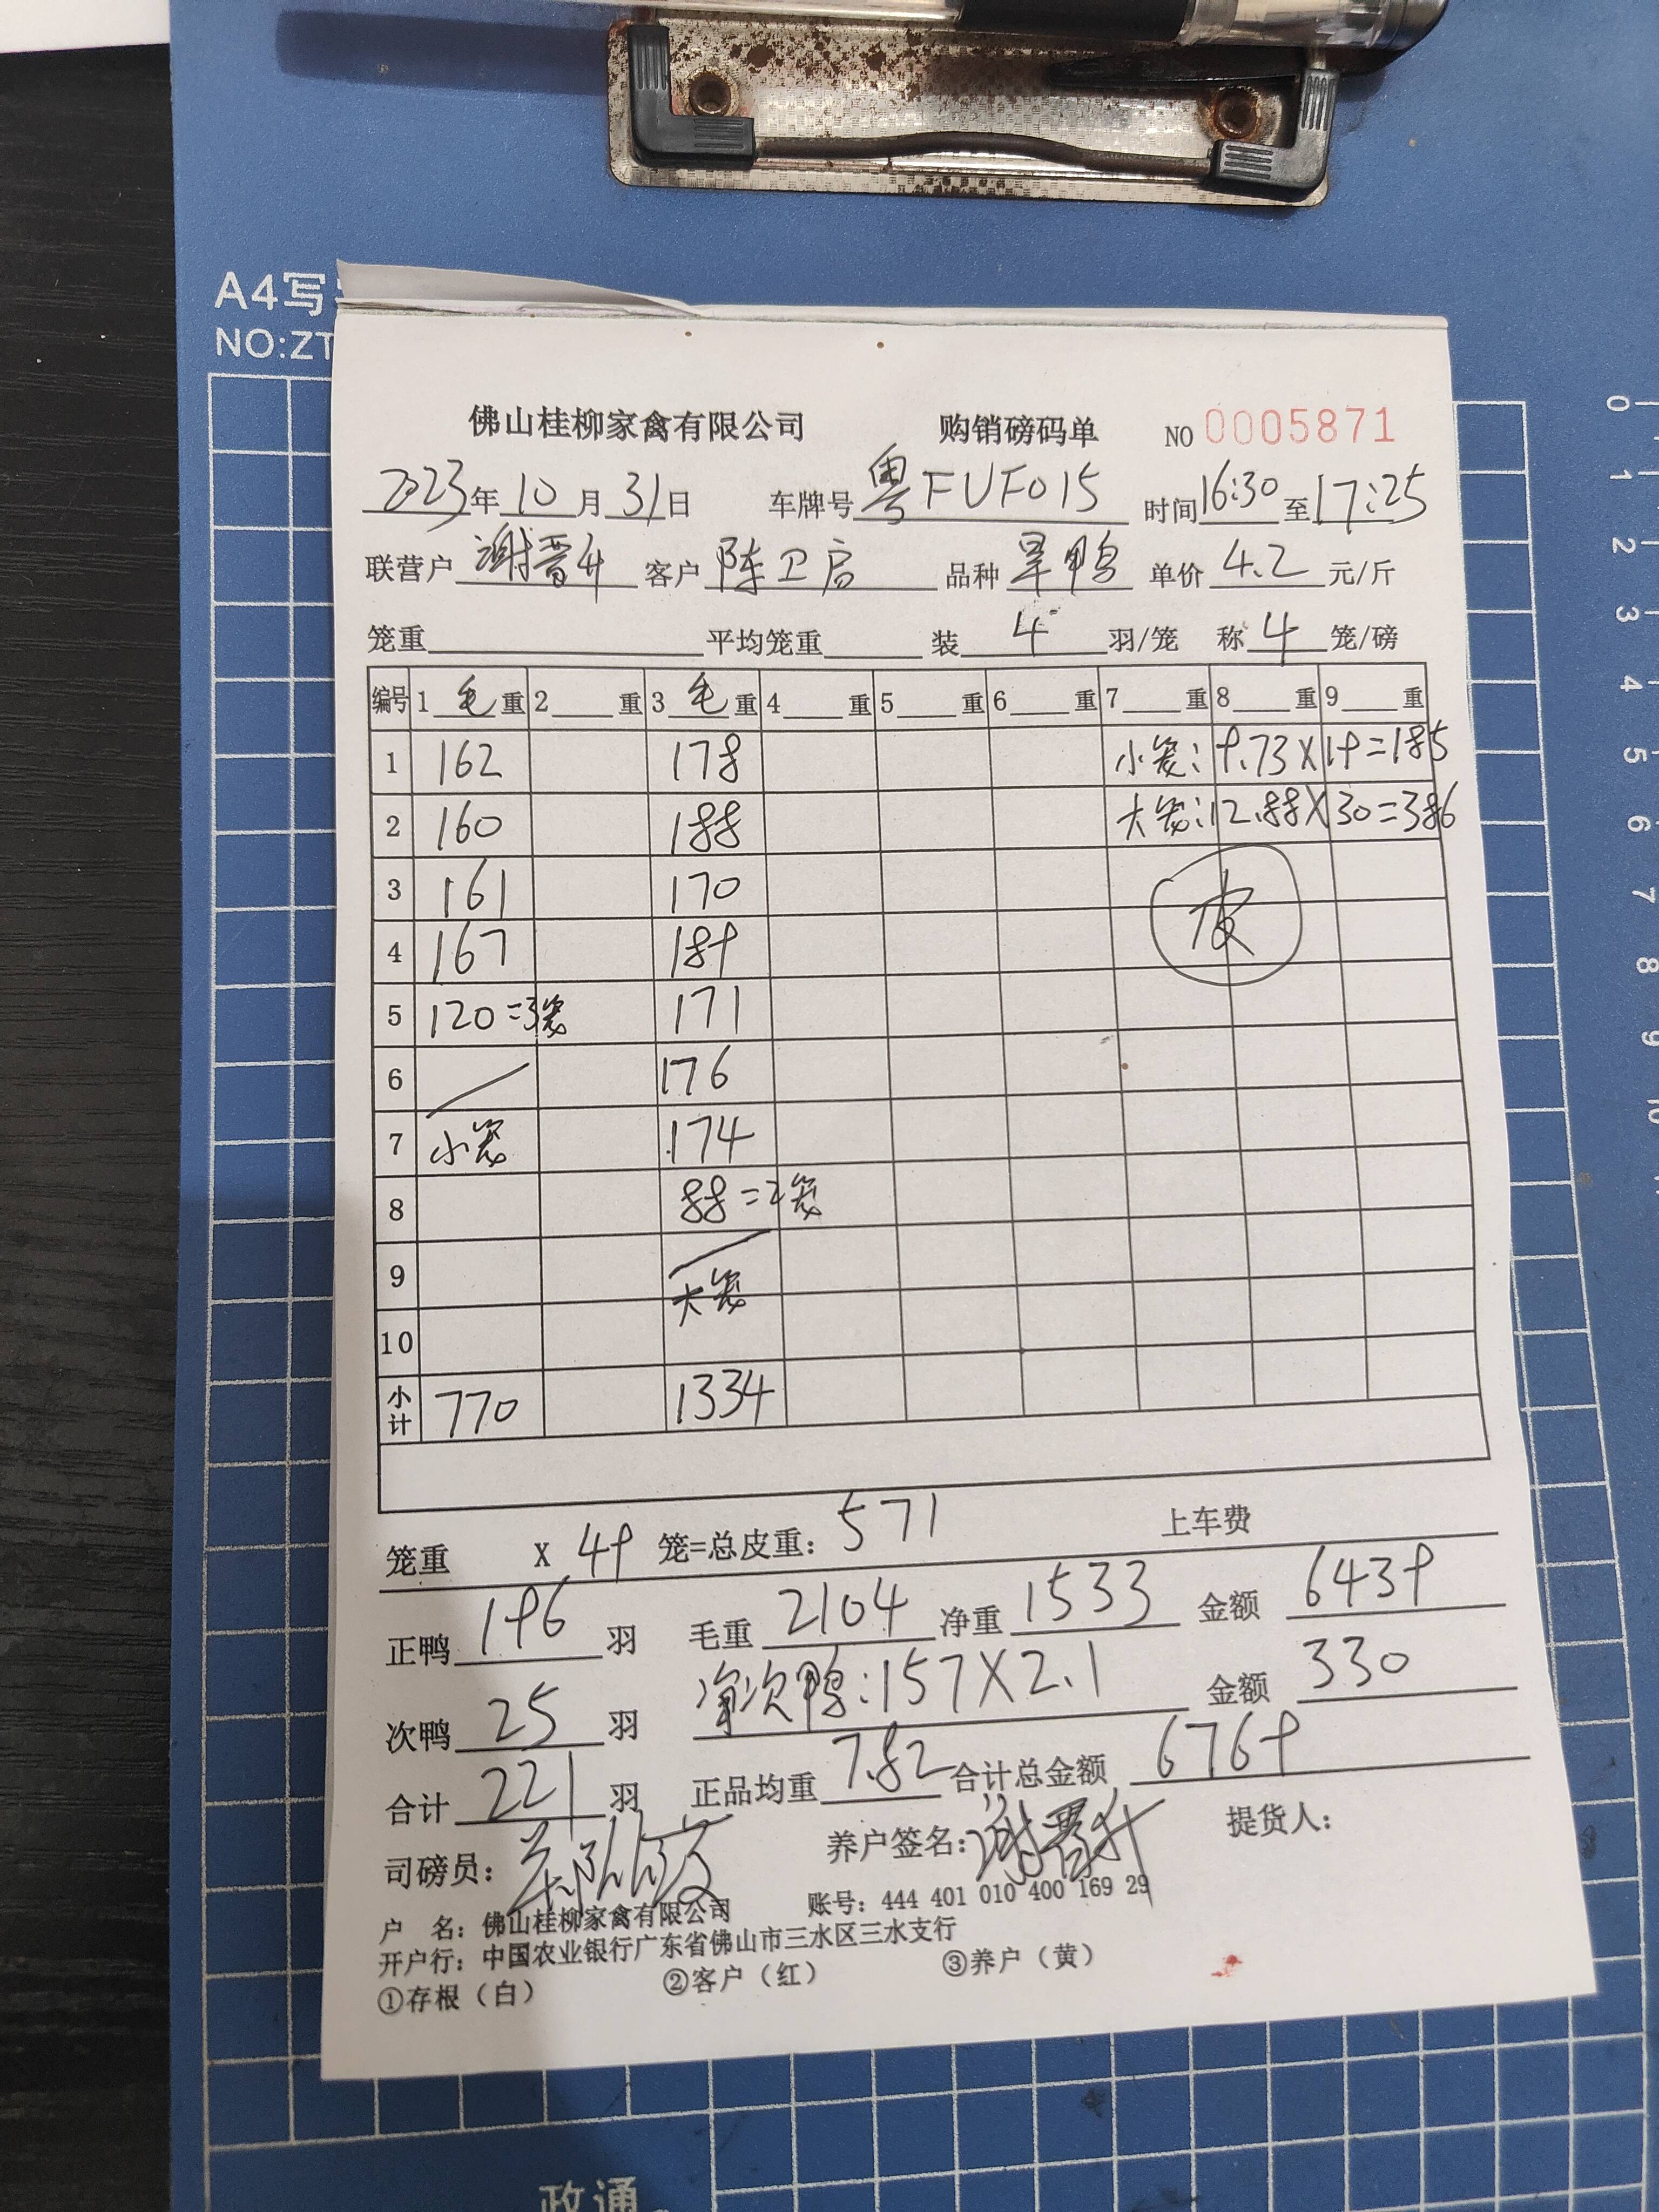 A4写
NO:ZT
佛山桂柳家禽有限公司 购销磅码单 NO 0005871
2023年10月31日 车牌号 粤FUF015 时间16:30至17:25
联营户 谢晋升 客户 陈卫启 品种 旱鸭 单价 4.2 元/斤
笼重 平均笼重 装 4 羽/笼 称 4 笼/磅
编号 1 毛 重 2 重 3 毛 重 4 重 5 重 6 重 7 重 8 重 9 重
1 162 178 小笼:9.73X19=185
2 160 188 大笼:12.88X30=386
3 161 170
4 167 189 皮
5 120=3笼 171
6 176
7 小笼 174
8 88=2笼
9 大笼
10
小计 770 1334
笼重 X 49 笼=总皮重: 571 上车费
正鸭 196 羽 毛重 2104 净重 1533 金额 6439
次鸭 25 羽 净次鸭:157X2.1 金额 330
合计 221 羽 正品均重 7.82 合计总金额 6769
司磅员: 养户签名: 谢晋升 提货人:
户 名: 佛山桂柳家禽有限公司 账号: 444 401 010 400 169 29
开户行: 中国农业银行广东省佛山市三水区三水支行
①存根(白) ②客户(红) ③养户(黄)
政通
0
1
2
3
4
5
6
7
8
9
10